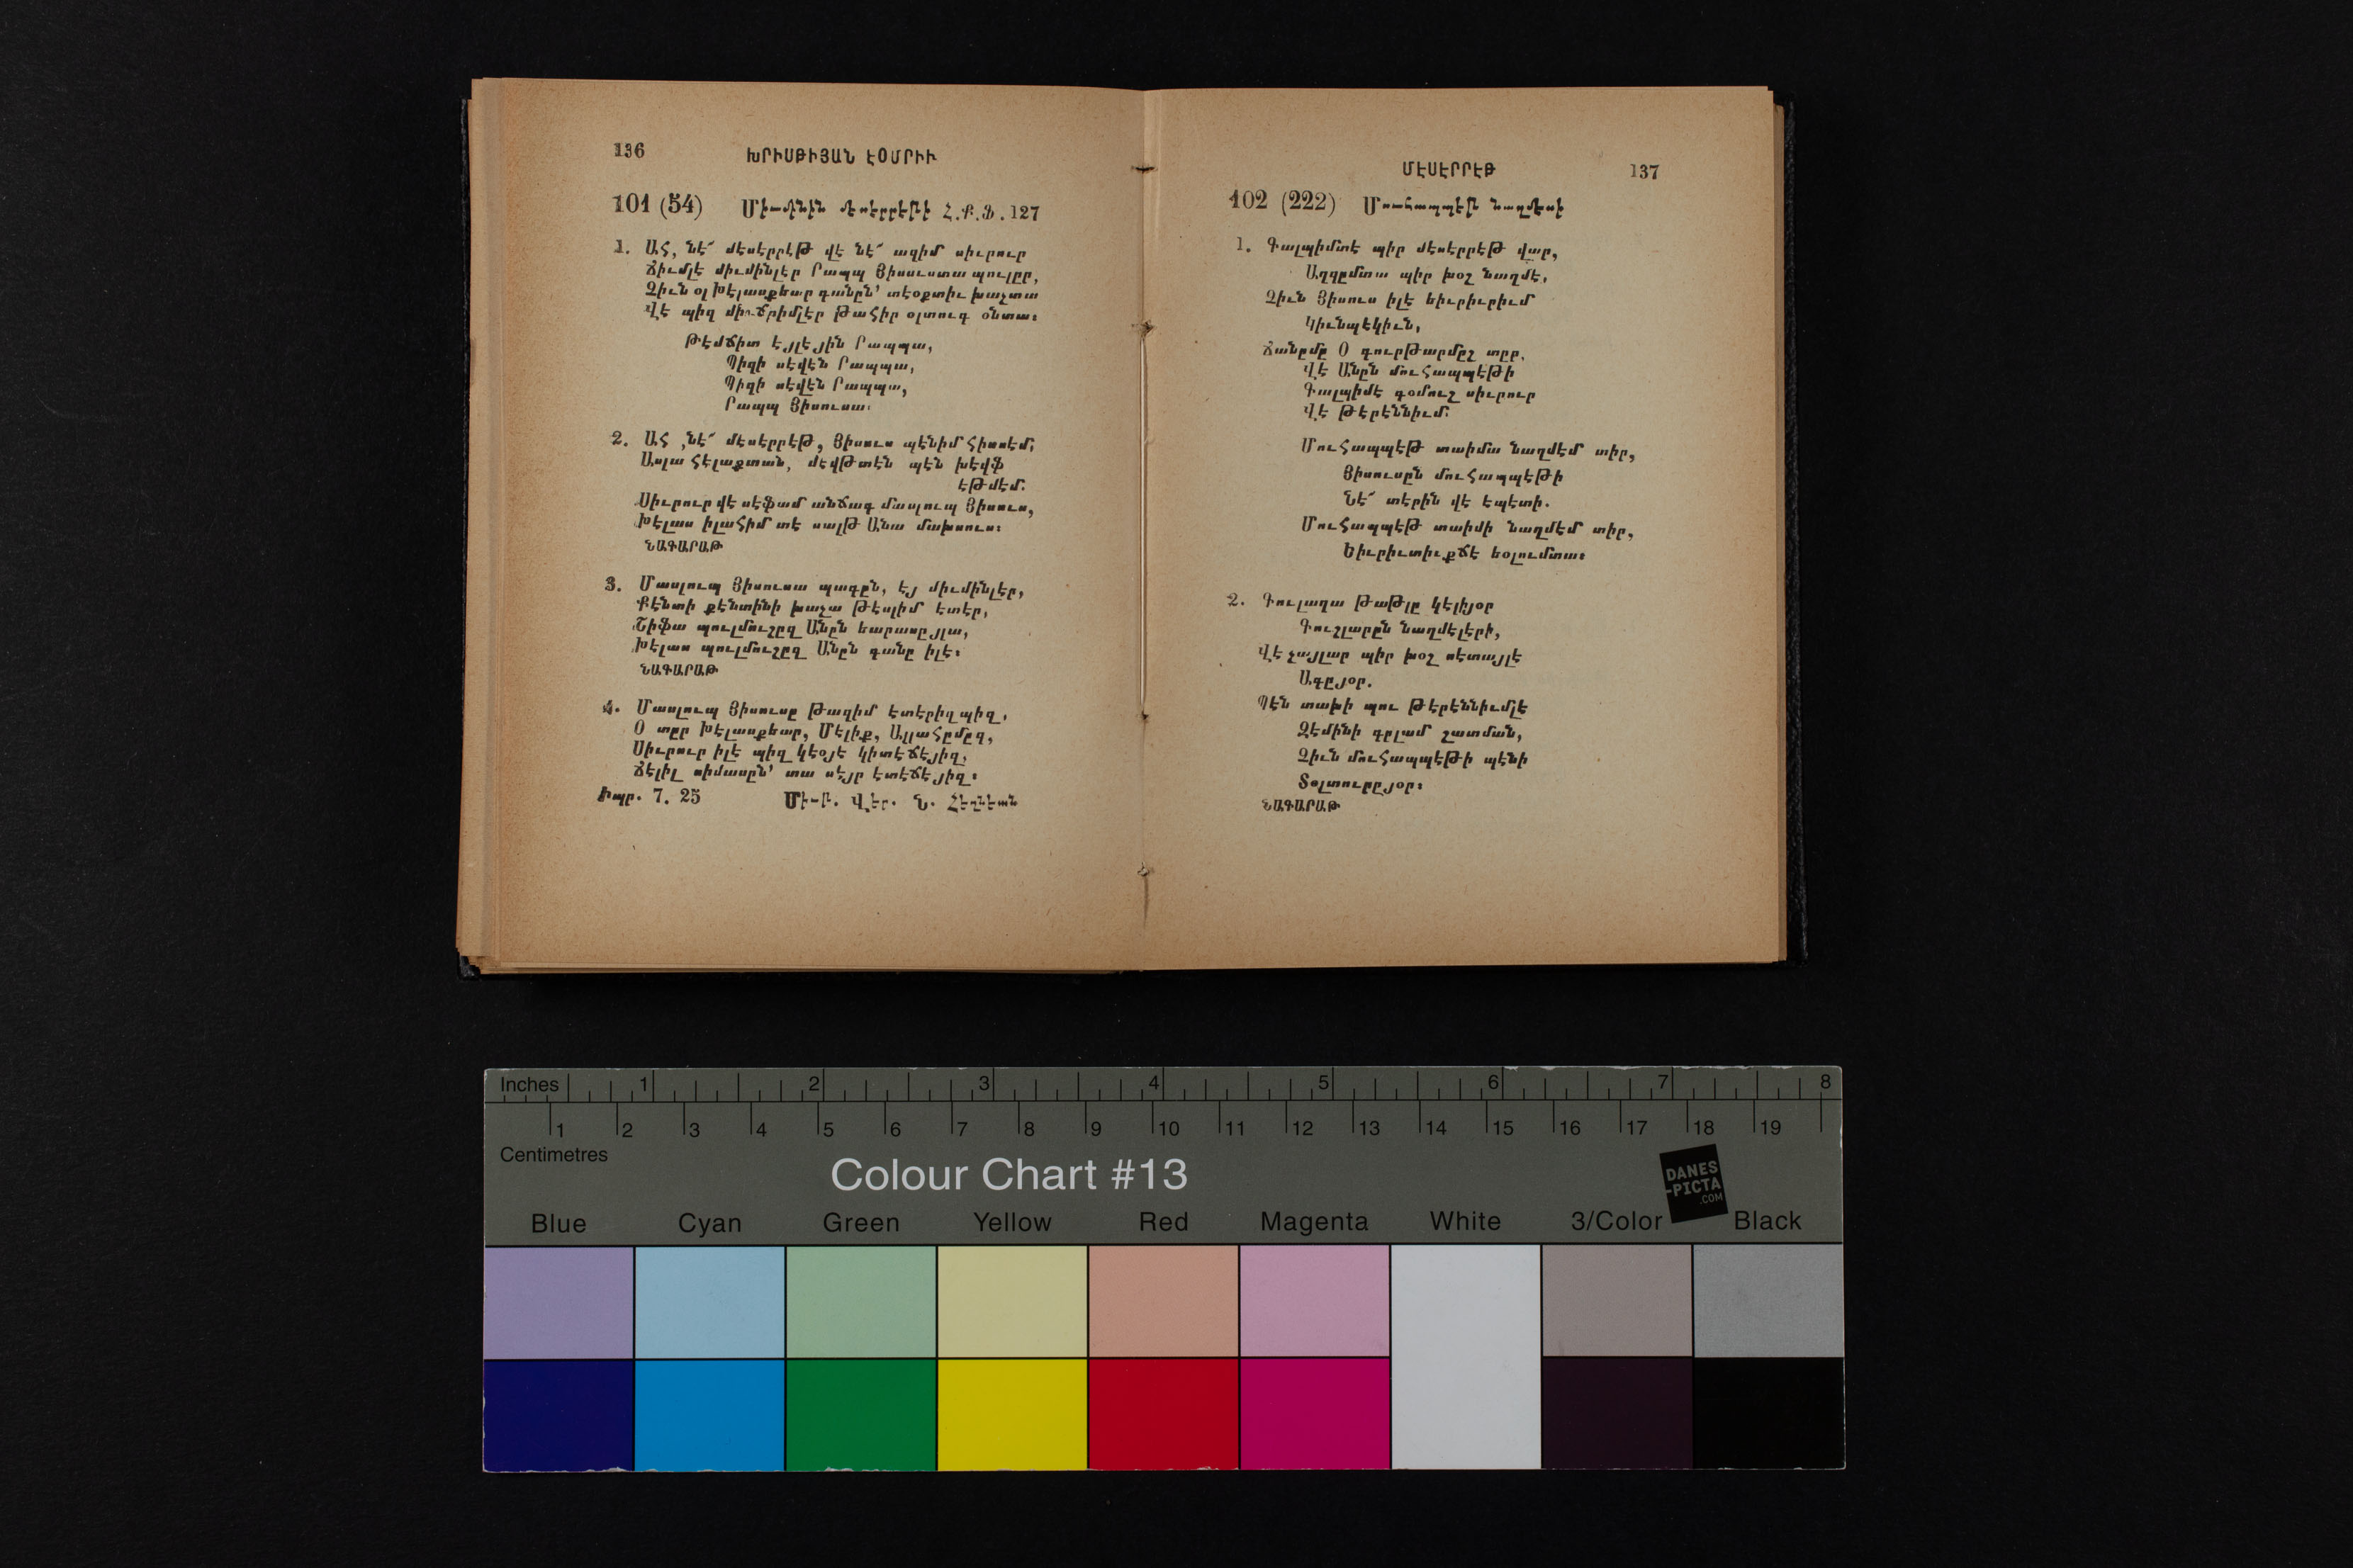 136 ԽՐԻՍԹԻՅԱՆ ԷՕՄՐԻՒ
101 (54) Միւմինին մեսէրրեթի Հ.Ք.Ֆ. 127
1. ԱՀ, նէ՜ մէսէրրէթ վէ նէ՜ ազիմ սիւրուր
Ճիւմլէ միւմինլէր Րապպ Յիսուստա պուլըր,
Զիւն օլ Խէլասքեար գանըն՝ տէօքտիւ խաչտա
Վէ պիզ միւճրիմլէր թահիր օլտուգ օնտա։
Թէմճիտ էյլէյին Րապպա,
Պիզի սէվէն Րապպա,
Պիզի սէվէն Րապպա,
Րապպ Յիսուսա։
2. ԱՀ, նէ՜ մէսէրրէթ, Յիսուս պէնիմ հիսսէմ։
Ասլա հէլաքտան, մէվթտէն պէն խէվֆ
էթմէմ.
Սիւրուր վէ սէֆամ անճագ մասլուպ Յիսուս,
Խէլաս իլահիմ տէ սալթ Անա մախսուս։
ՆԱԳԱՐԱԹ
3. Մասլուպ Յիսուսա պագըն, էյ միւմինլէր,
Քէնտի քէնտինի խաչա թէսլիմ էտէր,
Շիֆա պուլմուշըզ Անըն եարասըյլա,
Խէլաս պուլմուշըզ Անըն գանը իլէ։
ՆԱԳԱՐԱԹ
4. Մասլուպ Յիսուսը թազիմ էտէրիզ պիզ,
Օ տըր Խէլասքեար, Մէլիք, Ալլահըմըզ,
Սիւրուր իլէ պիզ կէօյէ կիտէճէյիզ,
Ճէլիլ սիմասըն՝ տա սէյր էտէճէյիզ։
Իպր. 7. 25 Վէր. Ն.
ՄԷՍԷՐՐԷԹ 137
102 (222) Մուհապպէթ նաղմեսի
1. Գալպիմտէ պիր մէսէրրէթ վար,
Աղզըմտա պիր խօշ նաղմէ,
Զիւն Յիսուս իլէ եիւրիւրիւմ
Կիւնպէկիւն,
Ճանըմը Օ գուրթարմըշ տըր.
Վէ Անըն մուհապպէթի
Գալպիմէ գօմուշ սիւրուր
Վէ թէրէննիւմ։
Մուհապպէթ տաիմա նաղմէմ տիր,
Յիսուսըն մուհապպէթի
Նէ՜ տէրին վէ էպէտի.
Մուհապպէթ տաիմի նաղմէմ տիր,
Եիւրիւտիւքճէ եօլումտա։
2. Գուլաղա թաթլը կէլիյօր
Գուշլարըն նաղմէլէրի,
Վէ չայլար պիր խօշ սէտայլէ
Ագըյօր.
Պէն տախի պու թէրէննիւմլէ
Զէմինի գըլամ շատման,
Զիւն մուհապպէթի պէնի
Տօլտուրըյօր։
ՆԱԳԱՐԱԹ
Inches 1 2 3 4 5 6 7 8
1 2 3 4 5 6 7 8 9 10 11 12 13 14 15 16 17 18 19
Centimetres
Colour Chart #13
DANES
-PICTA
.COM
Blue Cyan Green Yellow Red Magenta White 3/Color Black